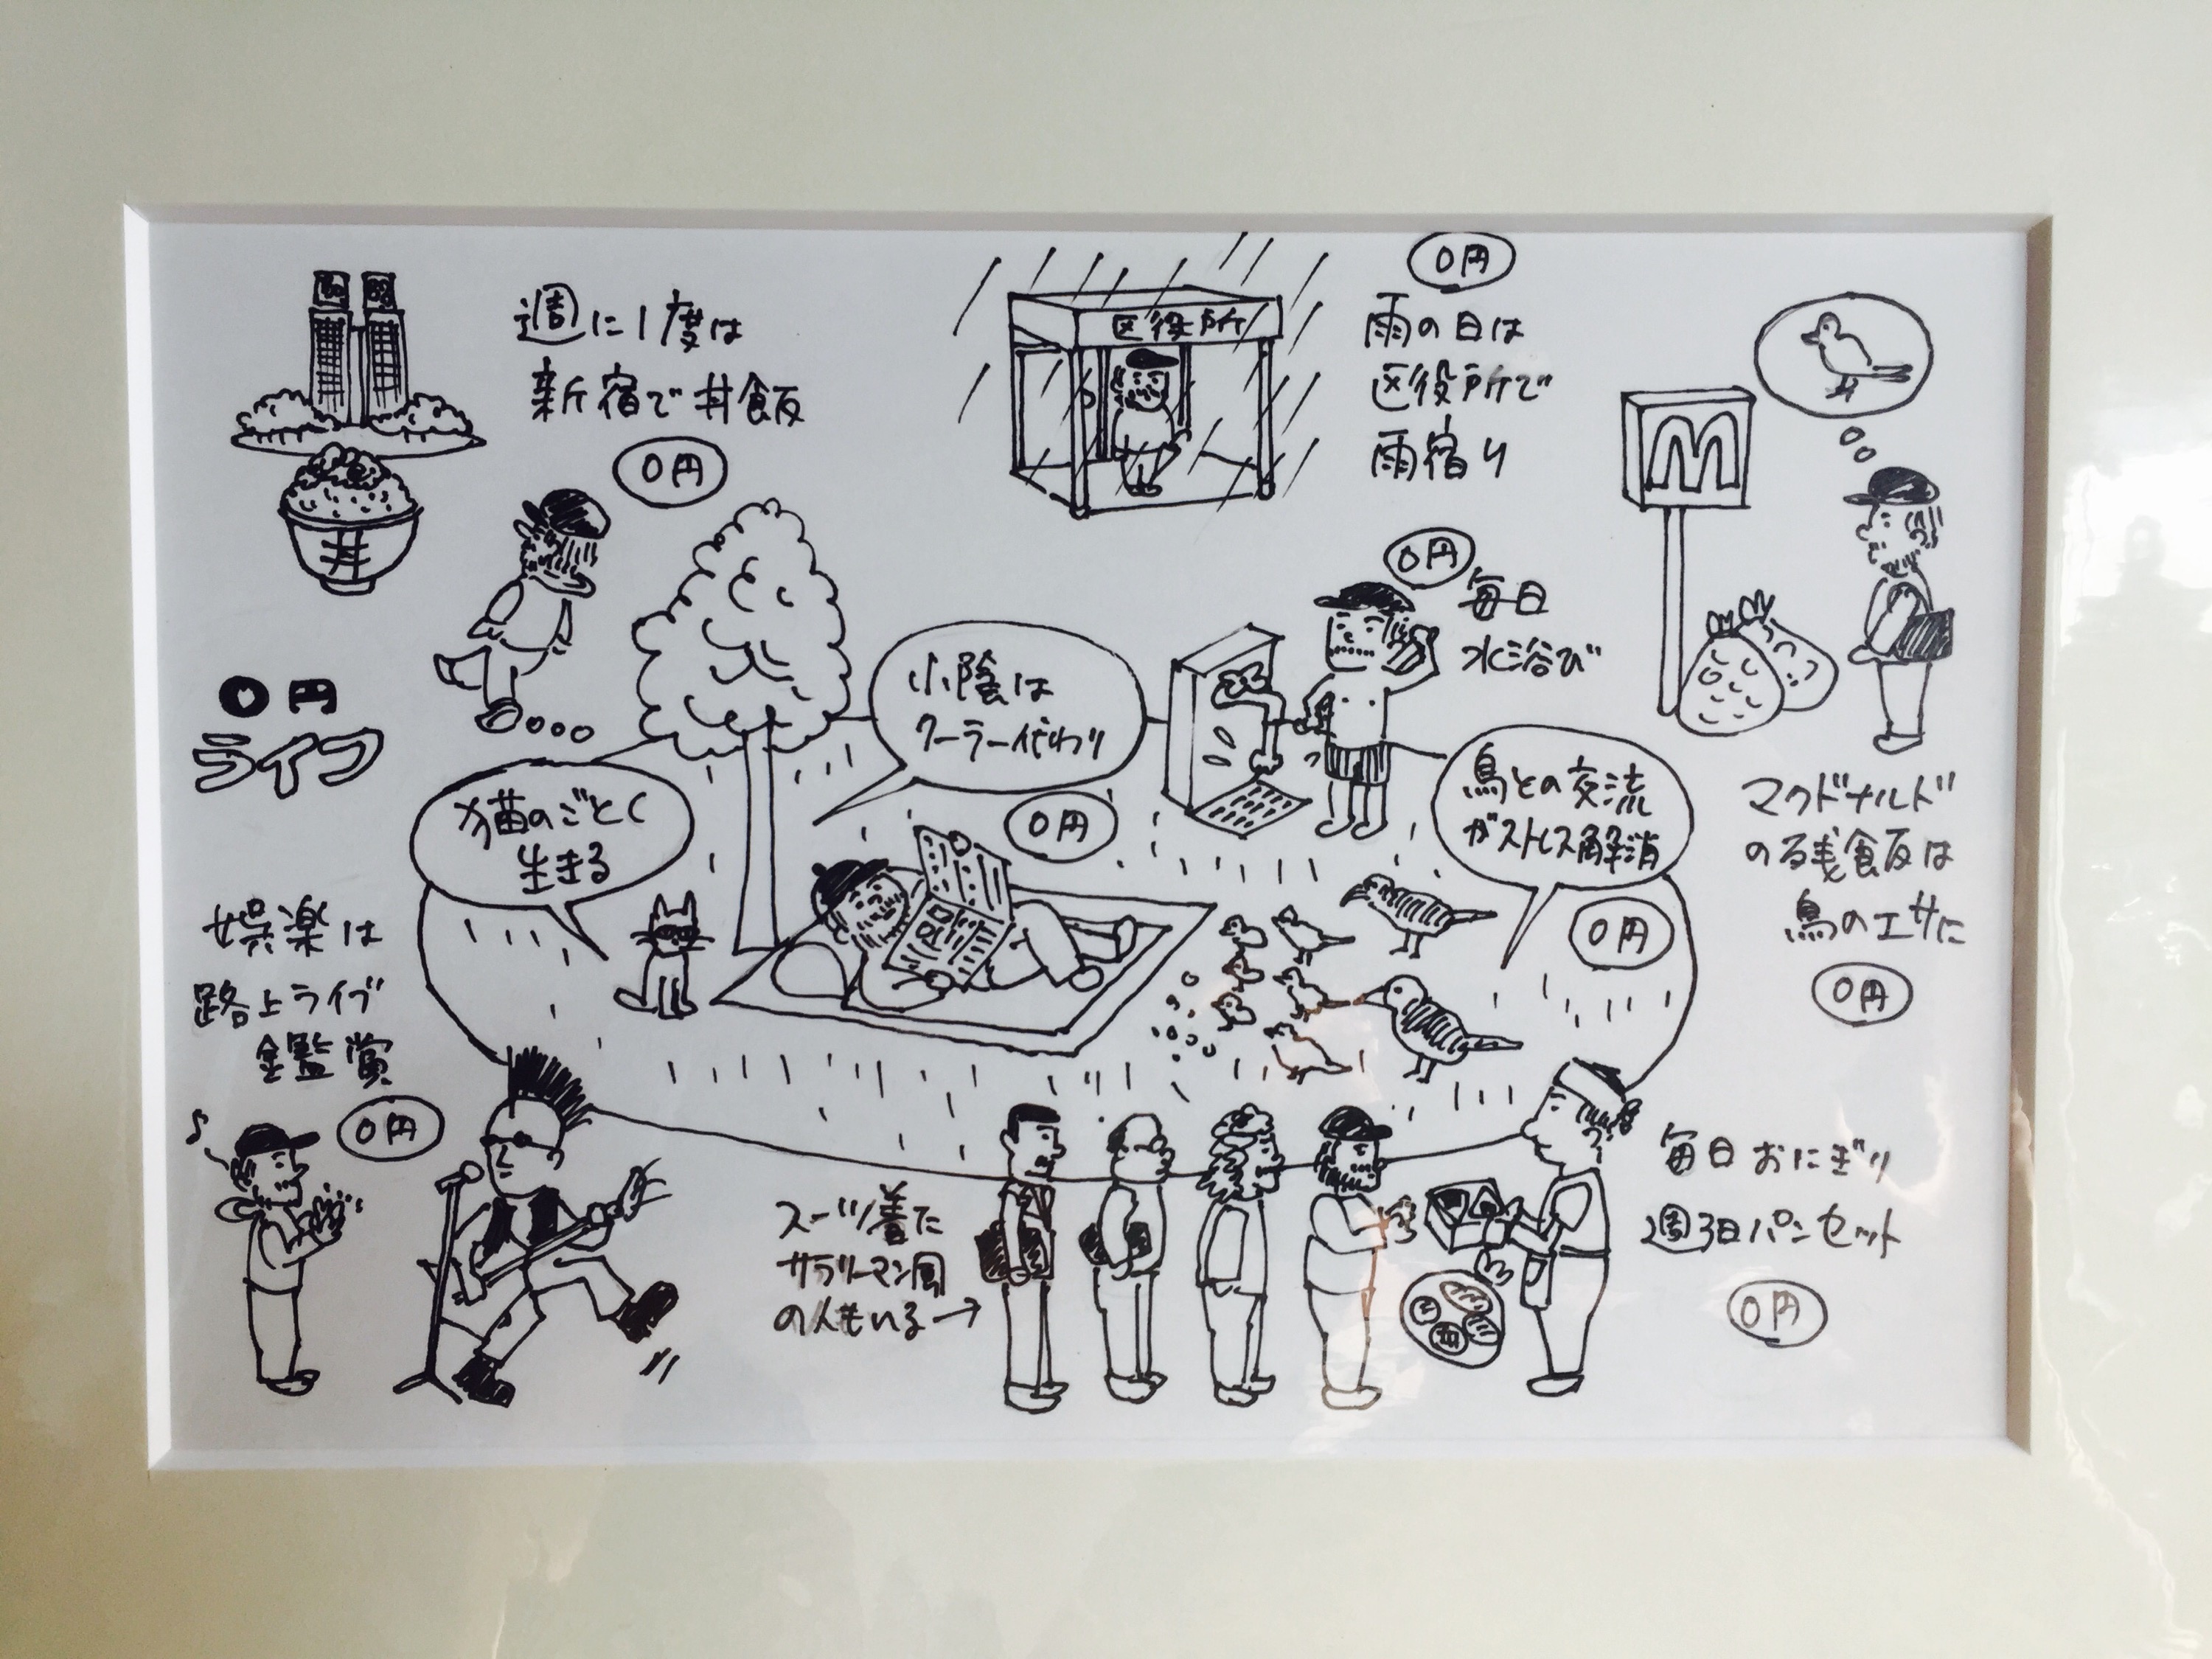 週に1度は
新宿で丼飯
0円
丼
区役所
0円
雨の日は
区役所で
雨宿り
M
0円
毎日
水浴び
マクドナルド
の残飯は
鳥のエサに
0円
0円
ライフ
小陰は
クーラー代わり
0円
猫のごとく
生きる
鳥との交流
がストレス解消
0円
娯楽は
路上ライブ
鑑賞
0円
スーツ着た
サラリーマン風
の人もいる→
毎日おにぎり
週3日パンセット
0円